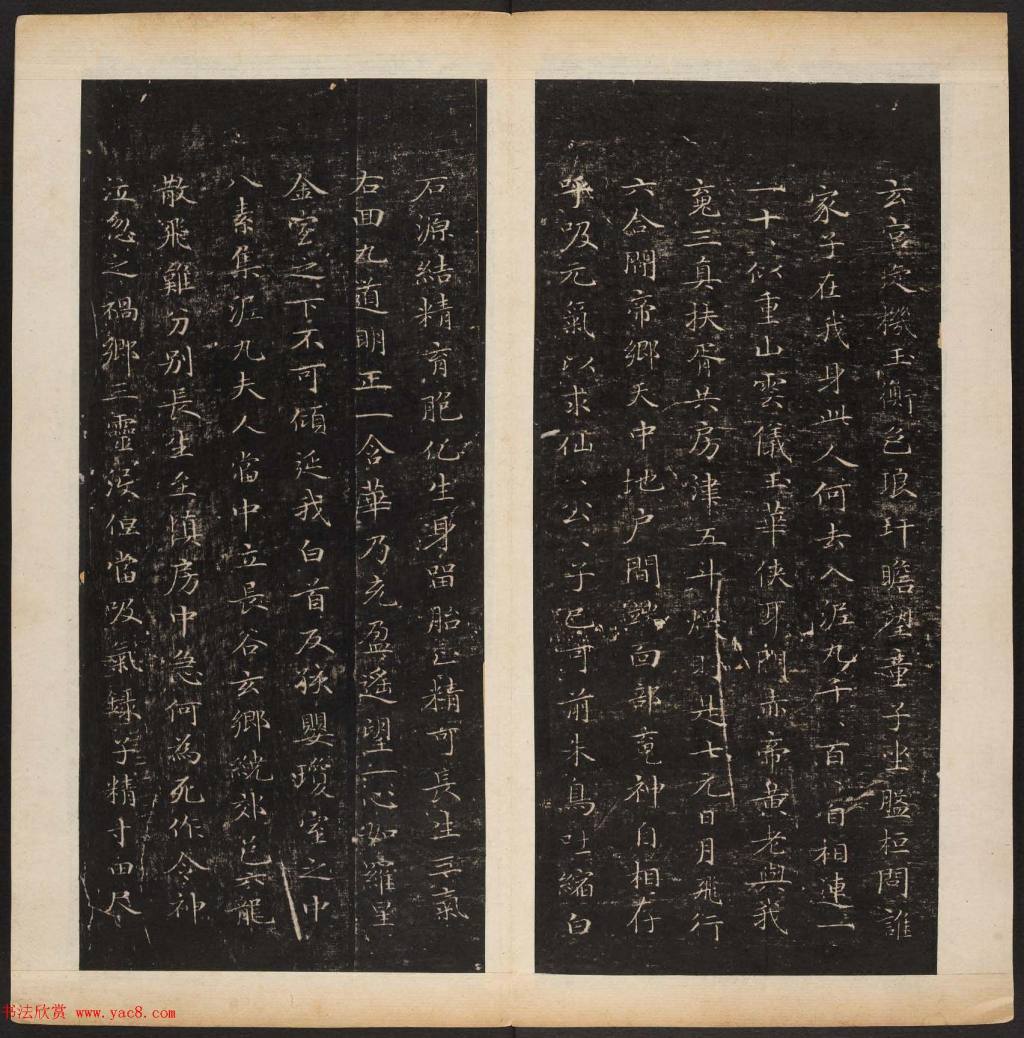 玄宮受機玉衡色琅玕瞻望童子坐盤桓問誰
家子在我身此人何去入泥丸千、百、自相連一
一十、似重山雲儀玉華俠耳門赤帝黃老與我
䰟三真扶胥共房津五斗煥明是七元日月飛行
六合間帝鄉天中地户間面部䰟神自相存
呼吸元氣以求仙、公、子已可前朱鳥吐縮白
石源結精育胞化生身留胎止精可長生三氣
右田九道明正一含華乃充盈遥望一心如羅星
金室之下不可傾延我白首反孩嬰瓊室之中
八素集泥丸夫人當中立長谷玄鄉繞郊邑六龍
散飛難分別長生至慎房中急何為死作令神
泣忽之禍鄉三靈没但當吸氣錄子精寸田尺
书法欣赏 www.yac8.com